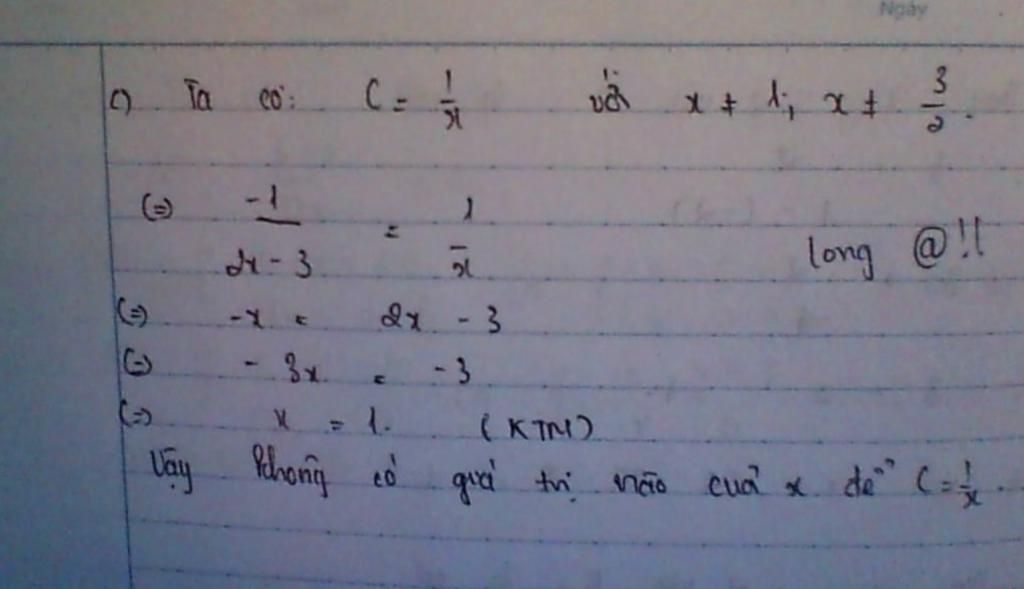 Ngày
c) Ta có: C = 1/x với x ≠ 1; x ≠ 3/2.
(=) -1/(2x - 3) = 1/x
long @!!
(=) -x = 2x - 3
(=) - 3x = -3
(=) x = 1. (KTM)
Vậy không có giá trị nào của x để C = 1/x.